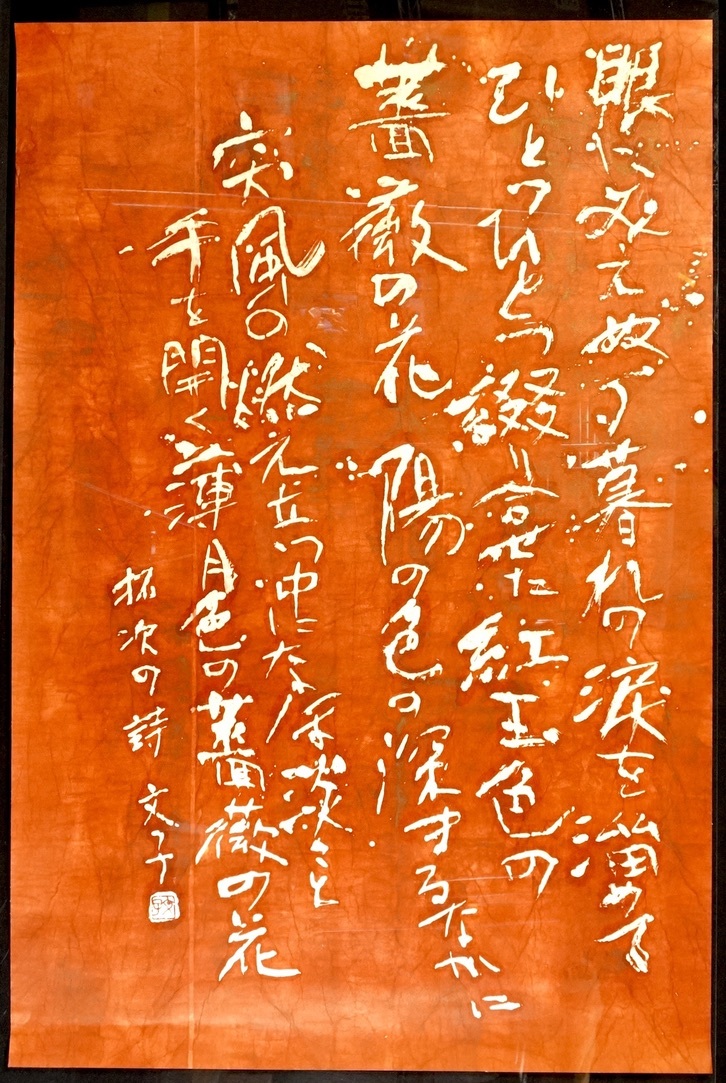 眼にみえぬ夕暮れの涙を溜めて
ひとつひとつ綴り合せた紅玉色の
薔薇の花 陽の色の深まるなかに
突風の燃え立つ中になほ淡々と
手を開く薄月色の薔薇の花
拓次の詩 文子